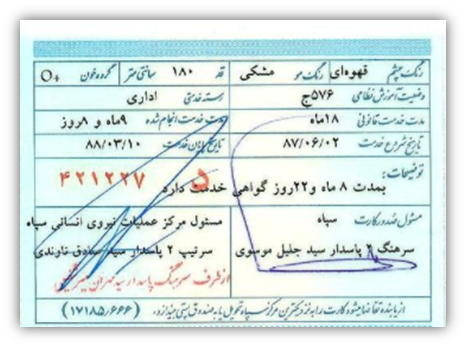 رنگ چشم قهوه‌ای رنگ مو مشکی قد ۱۸۰ سانتی متر گروه خون O+
وضعیت آموزش نظامی ۵۷۶ج رسته خدمتی اداری
مدت خدمت قانونی ۱۸ماه مدت خدمت انجام شده ۹ماه و ۸روز
تاریخ شروع خدمت ۸۷/۰۶/۰۲ تاریخ پایان خدمت ۸۸/۰۳/۱۰
توضیحات:
بمدت ۸ ماه و۲۲روز گواهی خدمت دارد
۵ ۴۲۱۲۲۷
مسئول صدور کارت سپاه مسئول مرکز عملیات نیروی انسانی سپاه
سرهنگ ۲ پاسدار سید جلیل موسوی سرتیپ ۲ پاسدار سید صادق
از طرف سرهنگ پاسدار سید
از یابنده تقاضا میشود کارت را به نزدیکترین مرکز سپاه تحویل یا به صندوق پستی بیندازد. (۱۷۱۸۵/۶۶۶)